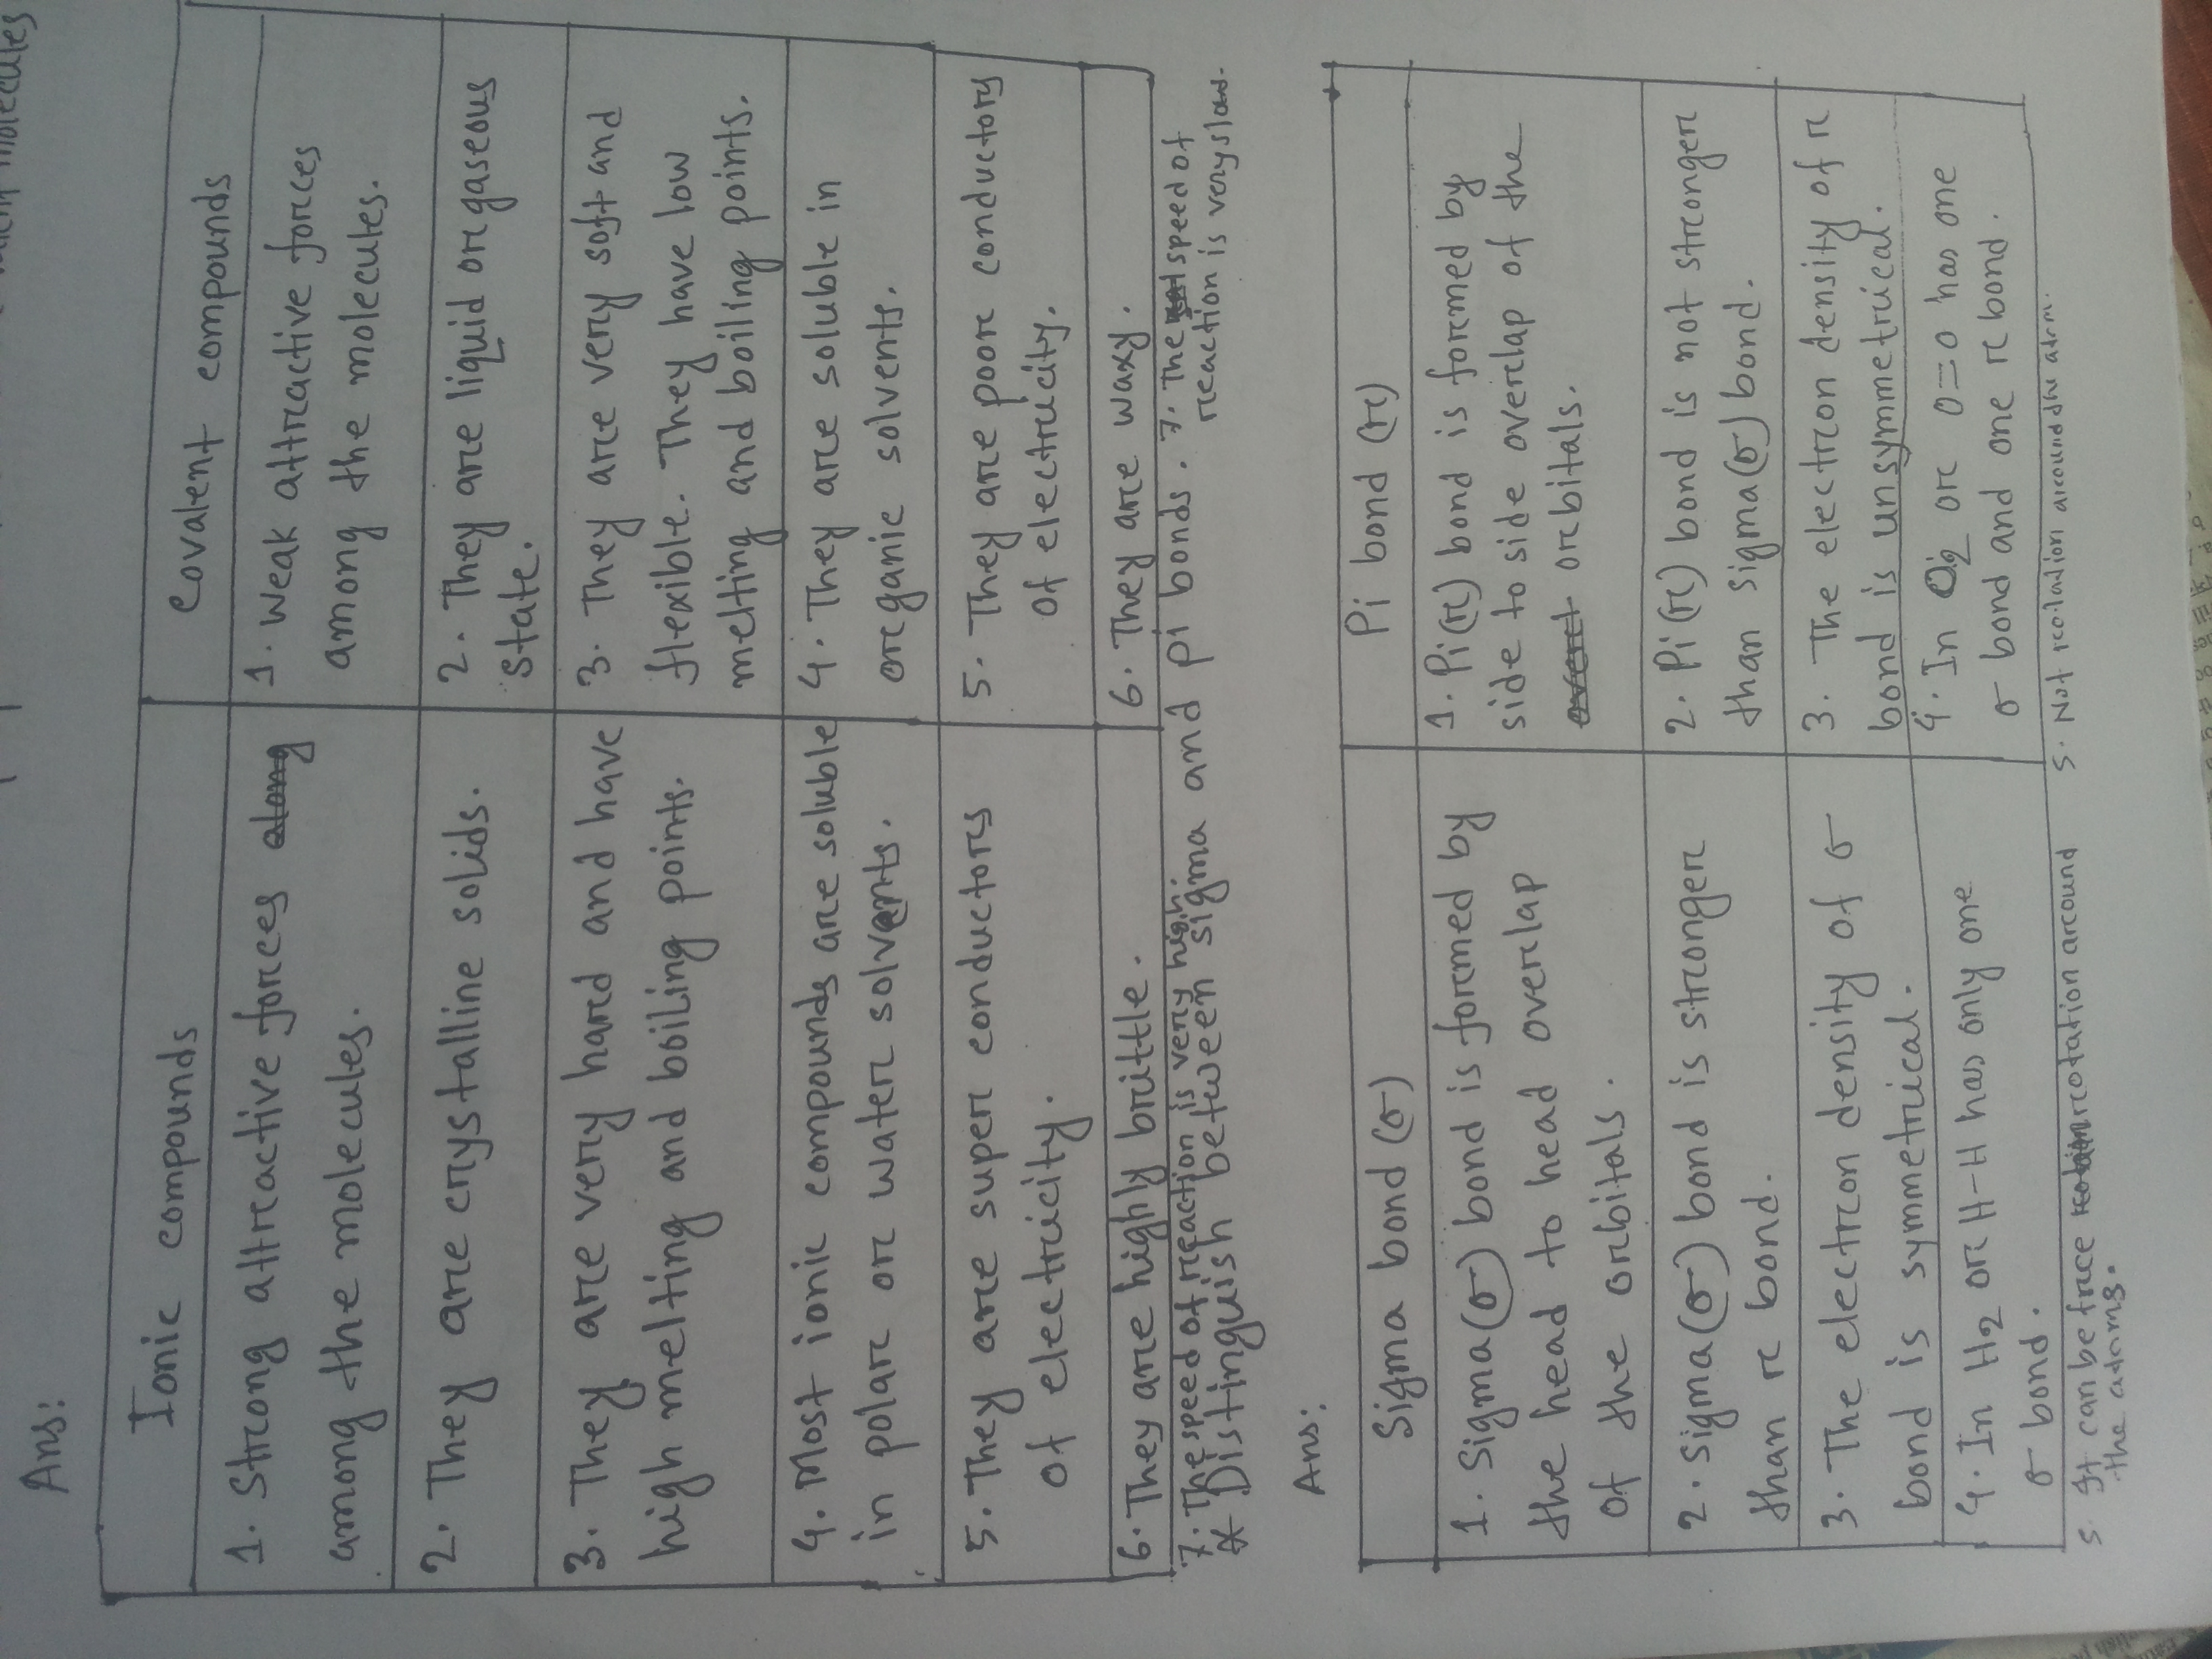 molecules
Ans:
Ionic compounds
Covalent compounds
1. Strong attractive forces along
among the molecules.
1. Weak attractive forces
among the molecules.
2. They are crystalline solids.
2. They are liquid or gaseous
state.
3. They are very hard and have
high melting and boiling points.
3. They are very soft and
flexible. They have low
melting and boiling points.
4. Most ionic compounds are soluble
in polar or water solvents.
4. They are soluble in
organic solvents.
5. They are super conductors
of electricity.
5. They are poor conductory
of electricity.
6. They are highly brittle.
6. They are waxy.
7. The speed of reaction is very high.
7. The speed of
reaction is very slow.
* Distinguish between sigma and pi bonds.
Ans:
Sigma bond (σ)
Pi bond (π)
1. Sigma (σ) bond is formed by
the head to head overlap
of the orbitals.
1. Pi (π) bond is formed by
side to side overlap of the
overt orbitals.
2. Sigma (σ) bond is stronger
than π bond.
2. Pi (π) bond is not stronger
than sigma (σ) bond.
3. The electron density of σ
bond is symmetrical.
3. The electron density of π
bond is unsymmetrical.
4. In H2 or H-H has only one
σ bond.
4. In O2 or O=O has one
σ bond and one π bond.
5. It can be free rotation around
the atoms.
5. Not rotation around the atom.